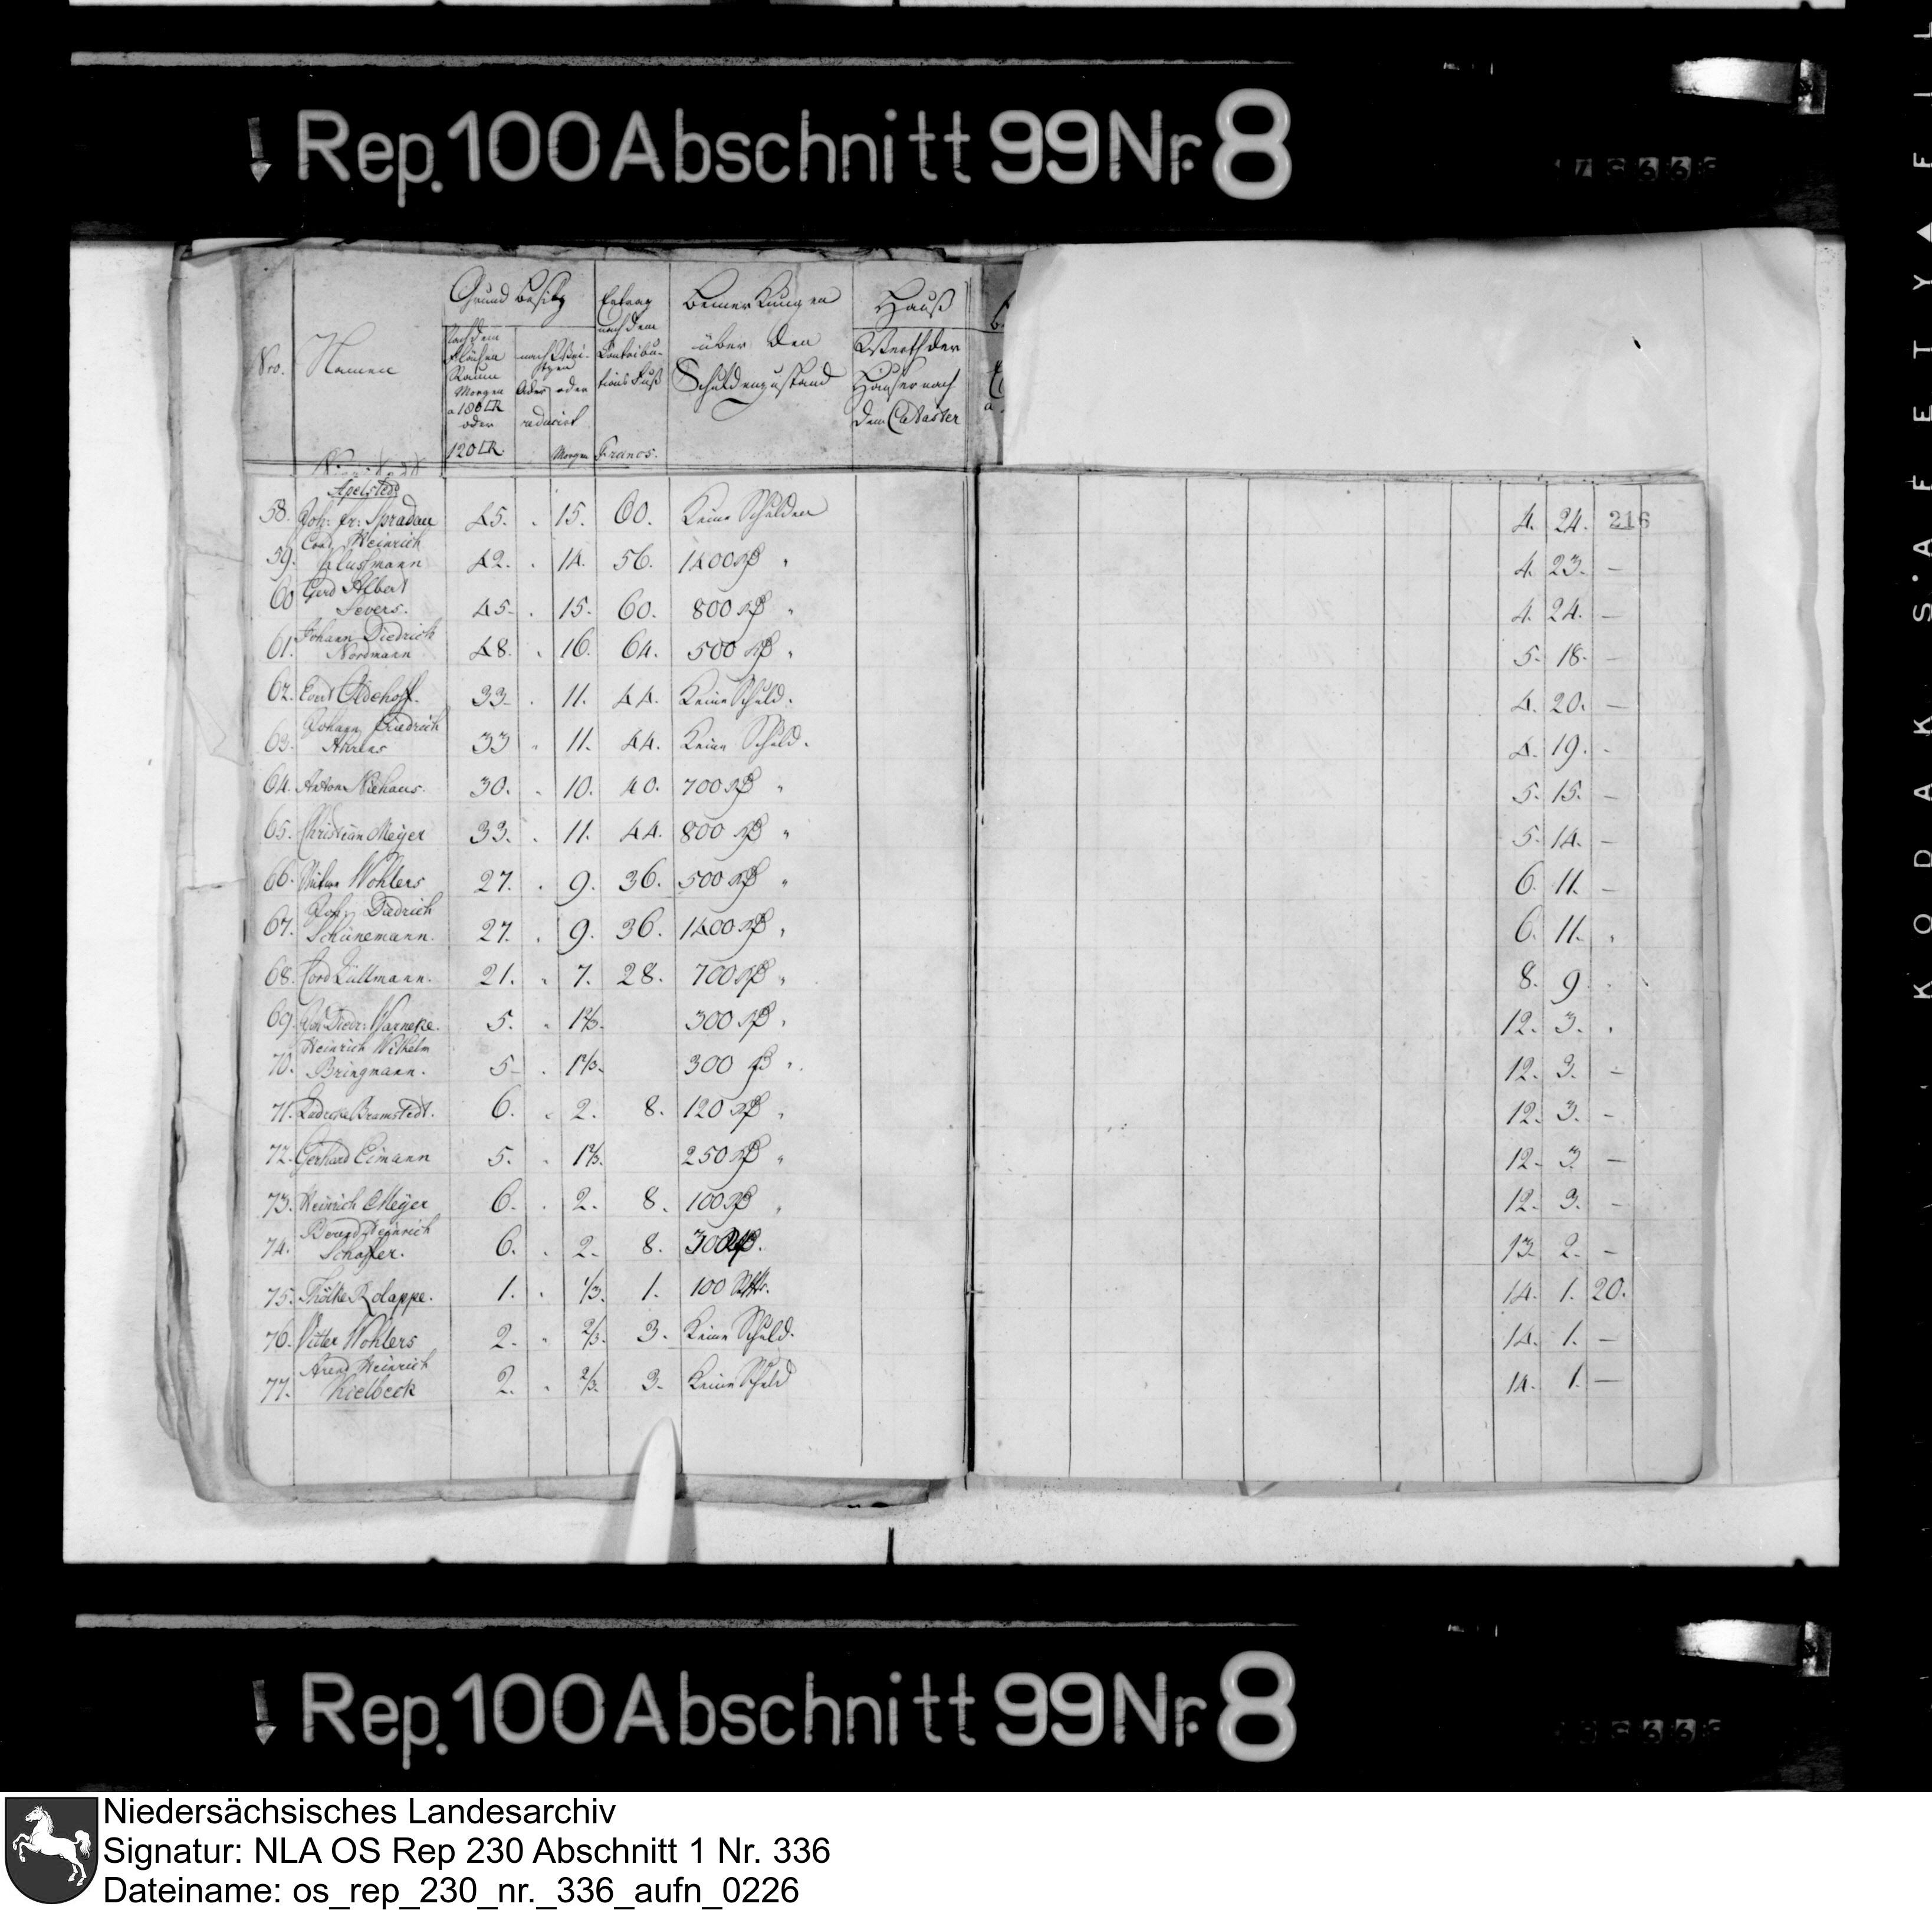 Rep. 100 Abschnitt 99 Nr. 8
Nro.
Namen
Grund Besitz
Nach dem
Flächen
Raum
Morgen
a 180 □R
oder
120 □R.
oder
reducirt
Morgen
Ertrag
nach dem
Contribu-
tions Fuß
Francs.
Bemerkungen
über den
Schuldenzustand
Hauß
Werth der
Häuser nach
dem Cataster
Apelstedt
58. Joh: Fr: Spradau 45. 15. 60. Keine Schulden 4. 24. 216
59. Heinrich 42. 14. 56. 1400 4. 23. —
60 Gerd Albert
Severs. 45. 15. 60. 800 4. 24. —
61. Johann Diedrich
Nordmann 48. 16. 64. 500 5. 18. —
62. Oldehoff. 33. 11. 44. Keine Schuld. 4. 20. —
63. Johann Friedrich
Ahrens 33 11. 44. Keine Schuld. 4. 19. -
64. Anton Niehaus. 30. 10. 40. 700 5. 15. —
65. Christian Meÿer 33. 11. 44. 800 5. 14. —
66. Wohlers 27. 9. 36. 500 6. 11. —
67. Joh: Diedrich
Schünemann. 27. 9. 36. 1400 6. 11.
68. Cord Lüllmann. 21. 7. 28. 700 8. 9.
69. Joh Diedr: Warneke. 5. 1 2/3. 300 12. 3.
70. Heinrich Wilhelm
Bringmann. 5 1 2/3. 300 12. 3. -
71. Bramstedt. 6. 2. 8. 120 12. 3. -
72. Gerhard Eimann 5. 1 2/3. 250 12. 3. —
73. Heinrich Meÿer 6. 2. 8. 100 12. 3. -
74. Berend Heinrich
Schaffer. 6. 2. 8. 300 13. 2. -
75. 1. 1/3. 1. 100 14. 1. 20.
76. Wohlers 2. 2/3. 3. Keine Schuld. 14. 1. —
77. Arend Heinrich
Kielbeck 2. 2/3. 3. Keine Schuld 14. 1. —
KODAK SAFETY FIL
Rep. 100 Abschnitt 99 Nr. 8
Niedersächsisches Landesarchiv
Signatur: NLA OS Rep 230 Abschnitt 1 Nr. 336
Dateiname: os_rep_230_nr._336_aufn_0226